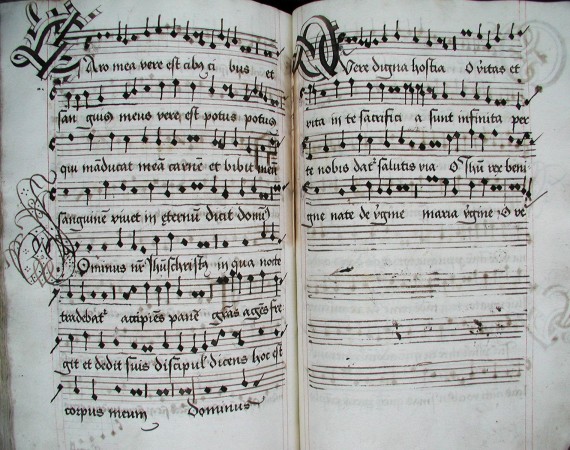 Caro mea vere est cibꝰ ci bus et
san guis meus vere est potus potus
qui mãducat meã carnẽ et bibit meũ
sanguinẽ viuet in ęternũ dicit domĩꝰ
Dominus nr̃ Jhũschristꝰ in qua nocte
tradebat᷑ accipiẽs panẽ gr̃as agẽs fre
git et dedit suis discipul᷒ dicens hoc est
corpus meum dominus
O vere digna hostia O vitas et
vita in te sacrifici a sunt infinita per
te nobis dat᷑ salutis via O Jhũ rex beni
gne nate de ṽgine maria ṽgine O ve